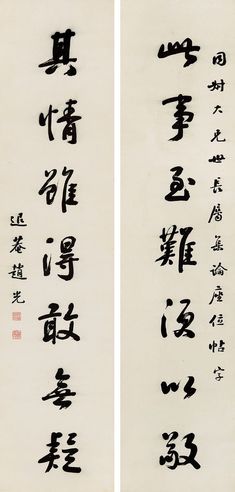 大兄世長屬集論座位帖字
此事至難須以敬
其情雖得敢無疑
退菴趙光